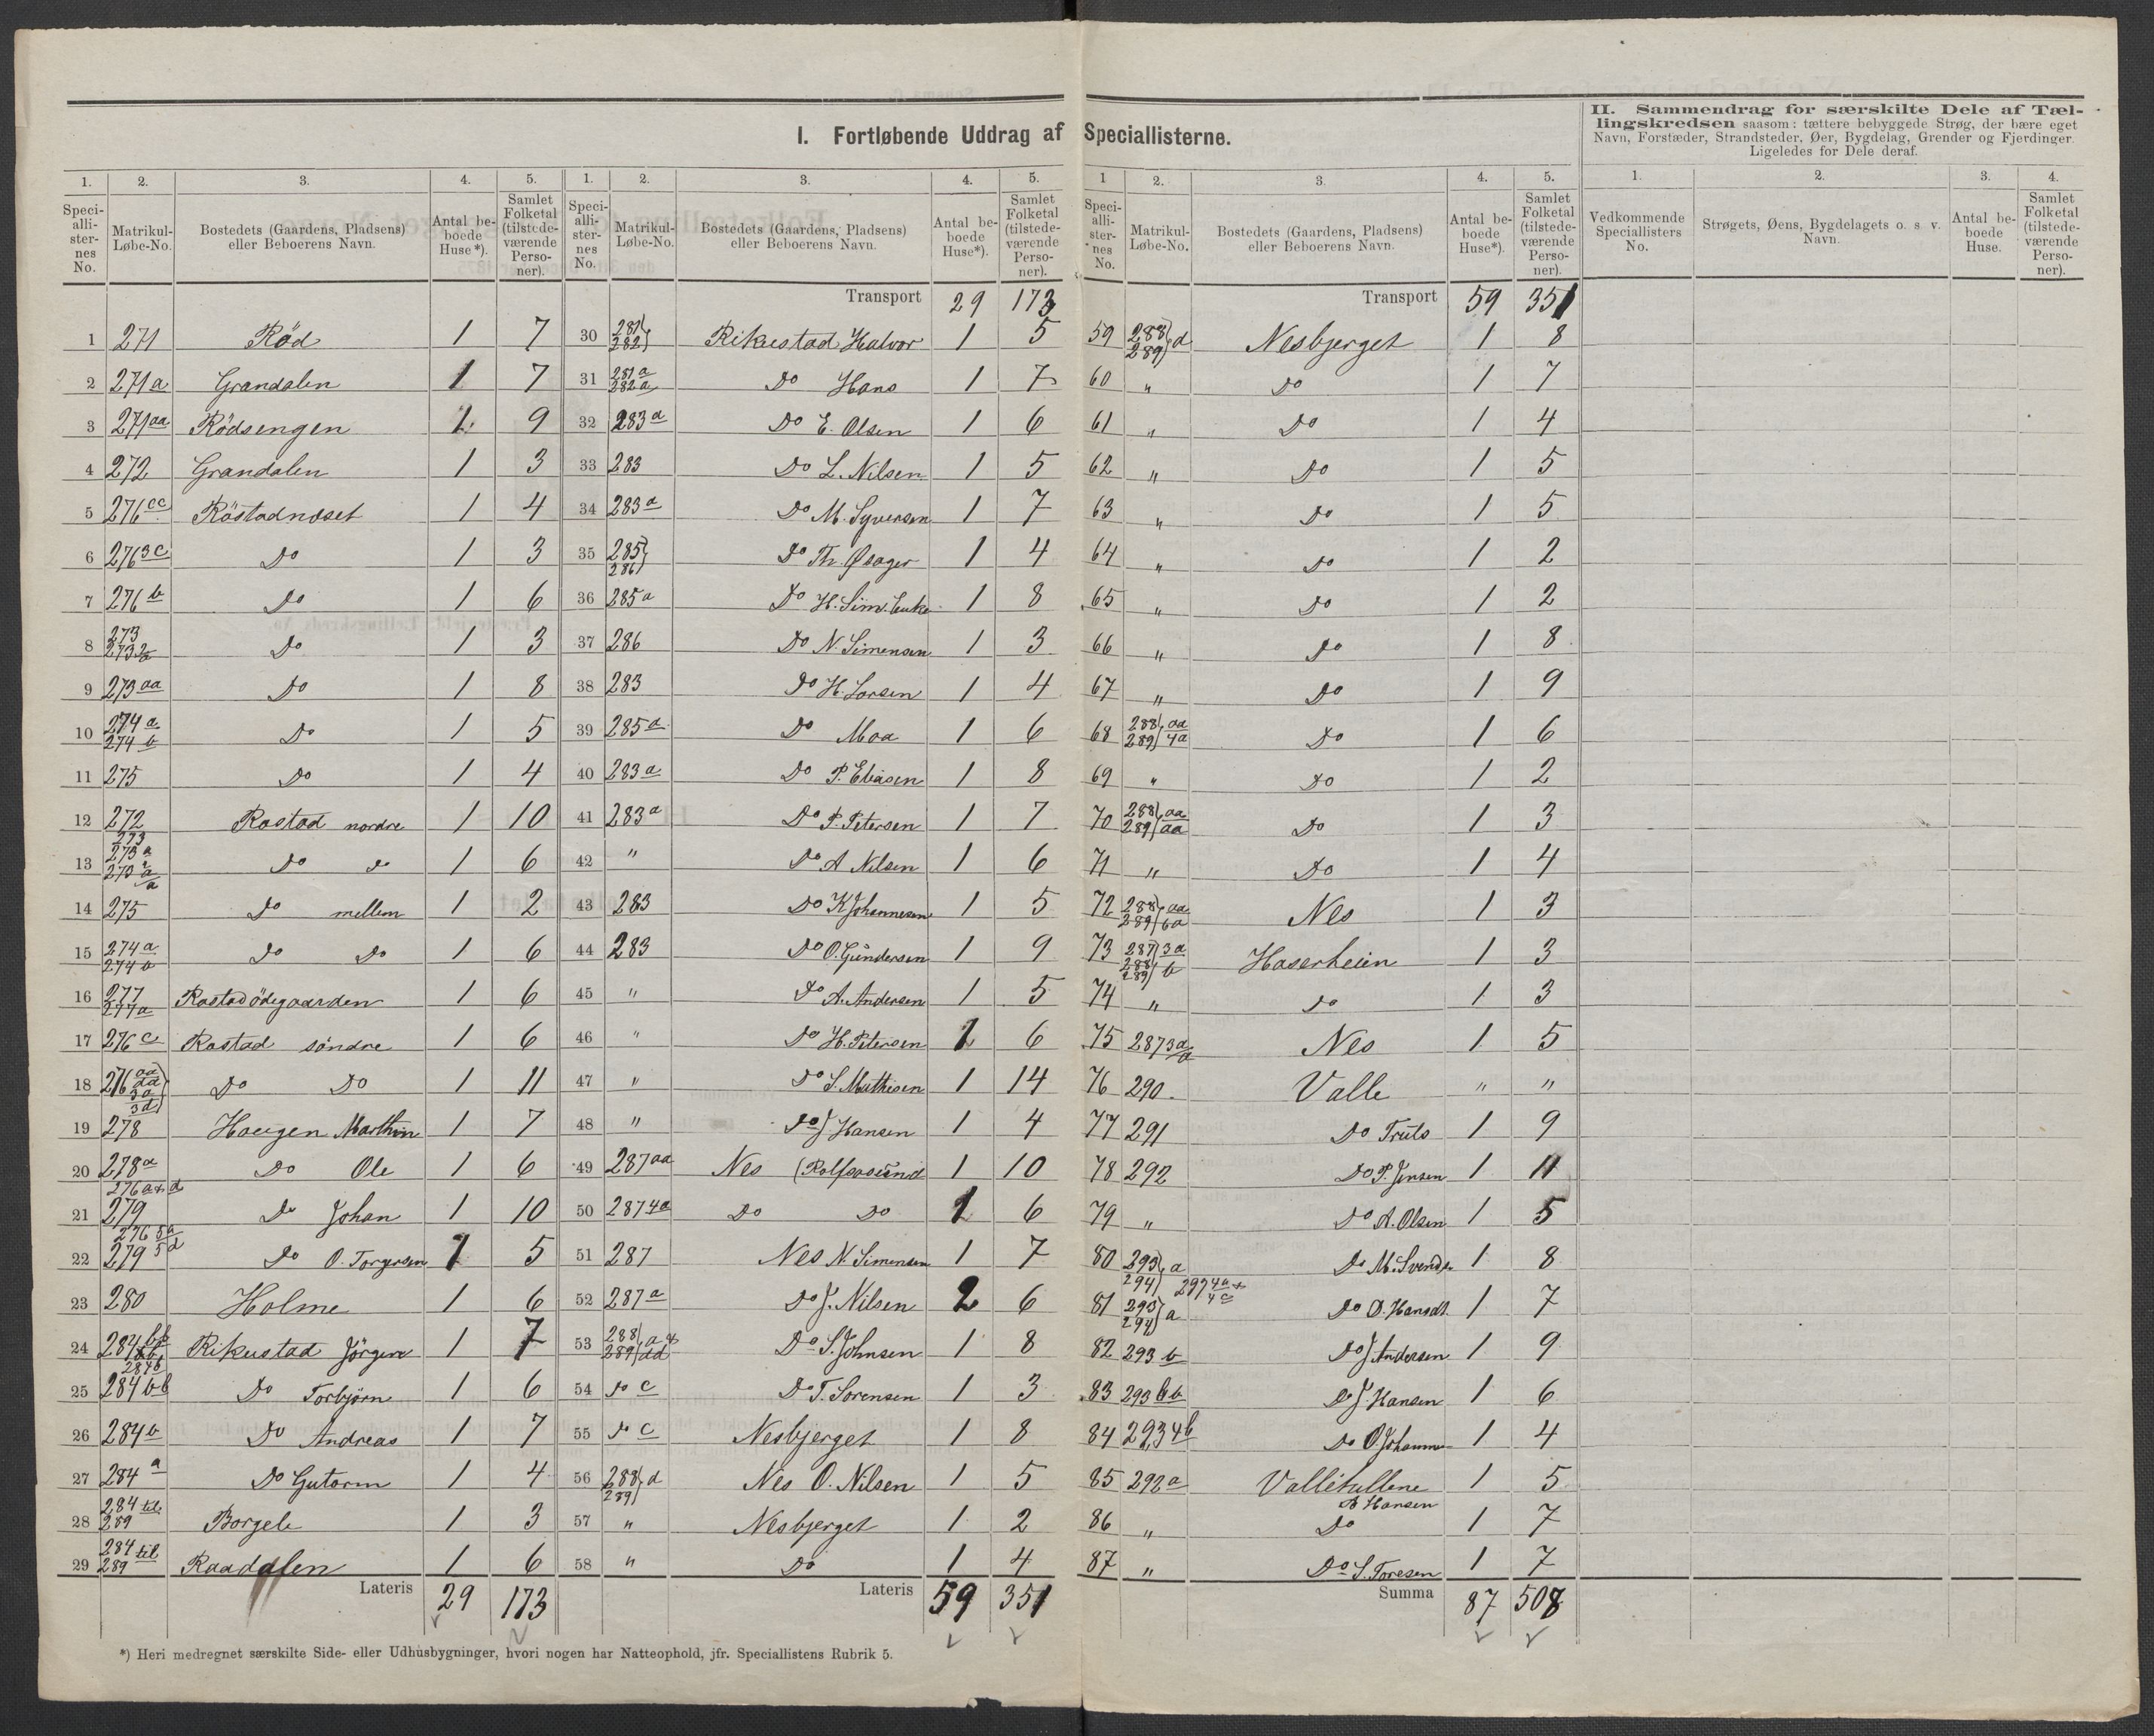 I. Fortløbende Uddrag af Speciallisterne.
II. Sammendrag for særskilte Dele af Tæl-
lingskredsen saasom: tættere bebyggede Strøg, der bære eget
Navn, Forstæder, Strandsteder, Øer, Bygdelag, Grender og Fjerdinger.
Ligeledes for Dele deraf.
1. 2. 3. 4. 5.
Speci-alli-ster-nes No. Matrikul-Løbe-No. Bostedets (Gaardens, Pladsen) eller Beboerens Navn. Antal be-boede Huse*). Samlet Folketal (tilstede-værende Perso-ner).
1 271 Röd 1 7
2 271a Grandalen 1 7
3 271aa Rödsengen 1 9
4 272 Grandalen 1 3
5 276cc Röstadnæset 1 4
6 276 3c Do 1 3
7 276b Do 1 6
8 273 Do 1 3
9 273aa Do 1 8
10 274a 274b Do 1 5
11 275 Do 1 4
12 272 273 Rostad nordre 1 10
13 273a Do do 1 6
14 275 Do mellem 1 2
15 274a 274b Do Do 1 6
16 277 277a Rostadödegaarden 1 6
17 276c Rostad söndre 1 6
18 276 aa dd 3a 3d Do Do 1 11
19 278 Haugen Marthin 1 7
20 278a Do Ole 1 6
21 276 a+d 279 Do Johan 1 10
22 276 5a 279 5d Do O. Torgersen 1 5
23 280 Holme 1 6
24 284 Rikustad Jörgen 1 7
25 284b 284bb Do Torbjörn 1 6
26 284b Do Andreas 1 7
27 284a Do Gutorm 1 4
28 284 til 289 Borgele 1 3
29 284 til 289 Raadalen 1 6
Lateris 29 173
1. 2. 3. 4. 5.
Speci-alli-ster-nes No. Matrikul-Løbe-No. Bostedets (Gaardens, Pladsen) eller Beboerens Navn. Antal be-boede Huse*). Samlet Folketal (tilstede-værende Perso-ner).
Transport 29 173
30 281 282 Rikustad Halvor 1 5
31 281a 282a Do Hans 1 7
32 283a Do E. Olsen 1 6
33 283 Do L. Nilsen 1 5
34 283a Do M. Syversen 1 7
35 285 286 Do Th. Øsager 1 4
36 285a Do H. Sim. Enke 1 8
37 286 Do N. Simensen 1 3
38 283 Do H. Larsen 1 4
39 285a Do Moa 1 6
40 283a Do P. Eliasen 1 8
41 283a Do P. Petersen 1 7
42 " Do A Nilsen 1 6
43 283 Do K Johannesen 1 5
44 283 Do O. Gundersen 1 9
45 " Do A. Andersen 1 5
46 " Do H. Petersen 1 6
47 " Do S. Mathisen 1 14
48 " Do J Hansen 1 4
49 287aa Nes (Rolfsøsund 1 10
50 287 4a Do Do 1 6
51 287 Nes N. Simensen 1 7
52 287a Do J. Nilsen 2 6
53 288 289 a & dd Do S. Johnsen 1 8
54 do c Do T. Sorensen 1 3
55 do c Nesbjerget 1 8
56 288 289 d Nes O. Nilsen 1 5
57 " Nesbjerget 1 2
58 " Do 1 4
Lateris 59 351
1 2. 3. 4. 5.
Speci-alli-ster-nes No. Matrikul-Løbe-No. Bostedets (Gaardens, Pladsen) eller Beboerens Navn. Antal be-boede Huse*). Samlet Folketal (tilstede-værende Perso-ner).
Transport 59 351
59 288 289 d Nesbjerget 1 8
60 " Do 1 7
61 " Do 1 4
62 " Do 1 5
63 " Do 1 5
64 " Do 1 2
65 " Do 1 2
66 " Do 1 8
67 " Do 1 9
68 288 289 aa 4a Do 1 6
69 " Do 1 2
70 288 289 aa aa Do 1 3
71 " Do 1 4
72 288 289 aa 6a Nes 1 3
73 287 288 289 3a b Haserheien 1 3
74 " Do 1 3
75 287 3a a Nes 1 5
76 290 Valle " "
77 291 Do Truls 1 9
78 292 Do P. Jensen 1 11
79 " Do A. Olsen 1 5
80 293 294 a Do M. Svends 1 8
81 293 294 a 4a 4c Do O. Hansdt. 1 7
82 293 b Do J Andersen 1 9
83 293 bb Do J Hansen 1 6
84 293 4b Do O Johannes 1 4
85 292a Vallehullene A Hansen 1 5
86 " Do 1 7
87 " Do S. Toresen 1 7
Summa 87 508
1. 2. 3. 4.
Vedkommende Speciallisters No. Strøgets, Øens, Bygdelagets o. s. v. Navn. Antal be-boede Huse. Samlet Folketal (tilstede-værende Perso-ner).
*) Heri medregnet særskilte Side- eller Udhusbygninger, hvori nogen har Natteophold, jfr. Speciallistens Rubrik 5.